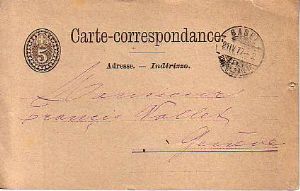 5
Carte-correspondance.
Adresse. — Indirizzo.
Monsieur
François Vallet
Genève